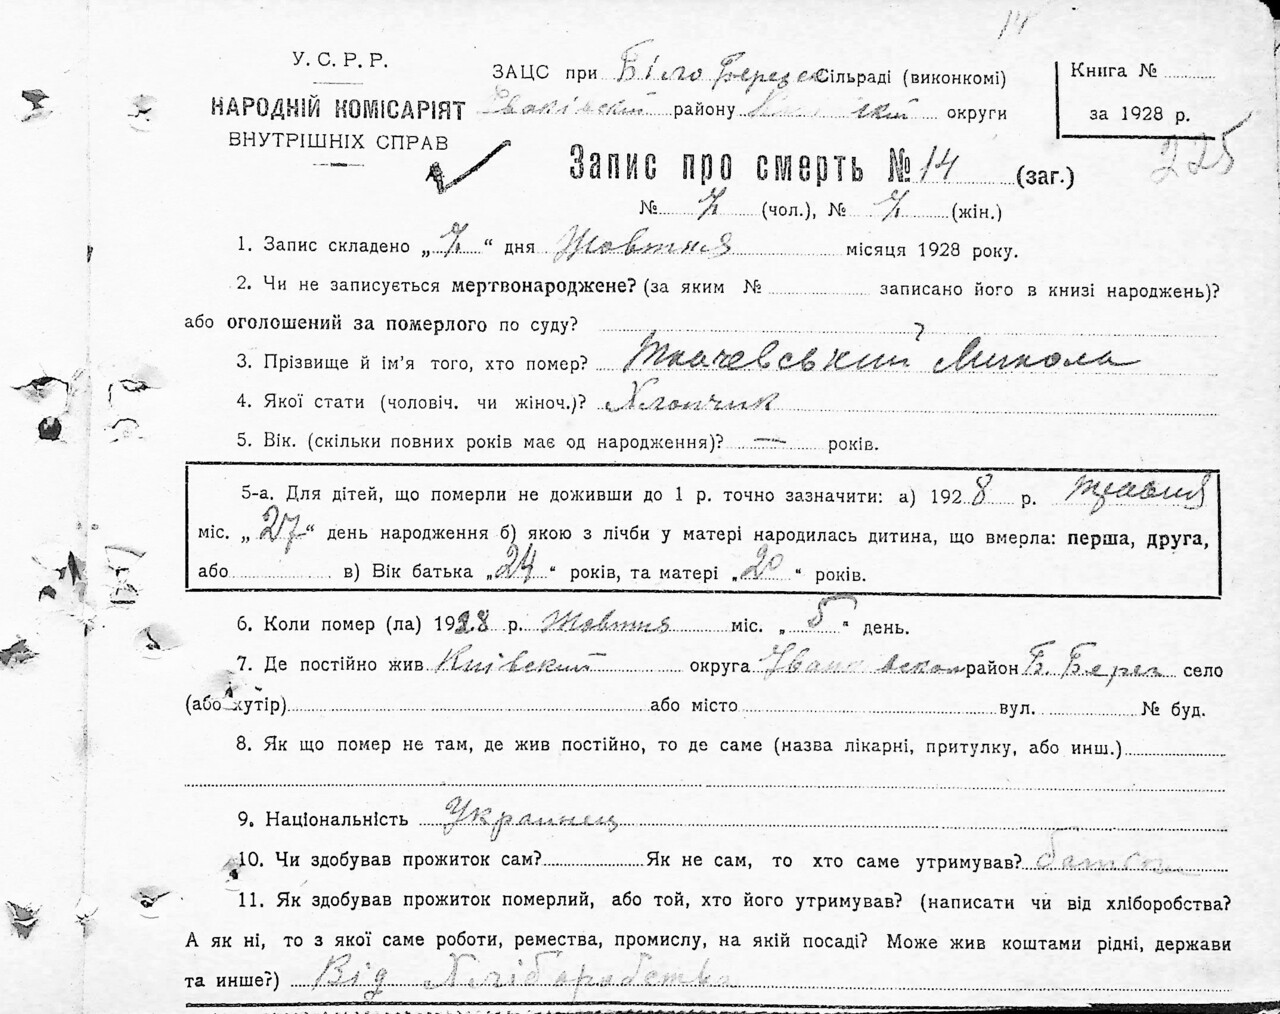 14
У. С. Р. Р.
НАРОДНІЙ КОМІСАРІЯТ
ВНУТРІШНІХ СПРАВ
ЗАЦС при Біло Березск Сільраді (виконкомі)
Іванківский району округи
Книга №
за 1928 р.
225
Запис про смерть № 14 (заг.)
№ 7 (чол.), № 7 (жін.)
1. Запис складено „7“ дня Жовтня місяця 1928 року.
2. Чи не записується мертвонароджене? (за яким № записано його в книзі народжень)?
або оголошений за померлого по суду?
3. Прізвище й ім’я того, хто помер? Ткачевський Микола
4. Якої стати (чоловіч. чи жіноч.)? Хлопчик
5. Вік. (скільки повних років має од народження)? — років.
5-а. Для дітей, що померли не доживши до 1 р. точно зазначити: а) 1928 р. травня
міс. „27“ день народження б) якою з лічби у матері народилась дитина, що вмерла: перша, друга,
або в) Вік батька „24“ років, та матері „20“ років.
6. Коли помер (ла) 1928 р. Жовтня міс. „5“ день.
7. Де постійно жив Київский округа Іванківском район Б. Берег село
(або хутір) або місто вул. № буд.
8. Як що помер не там, де жив постійно, то де саме (назва лікарні, притулку, або инш.)
9. Національність Украинец
10. Чи здобував прожиток сам? Як не сам, то хто саме утримував?
11. Як здобував прожиток померлий, або той, хто його утримував? (написати чи від хліборобства?
А як ні, то з якої саме роботи, ремества, промислу, на якій посаді? Може жив коштами рідні, держави
та инше?) Від Хліборобства